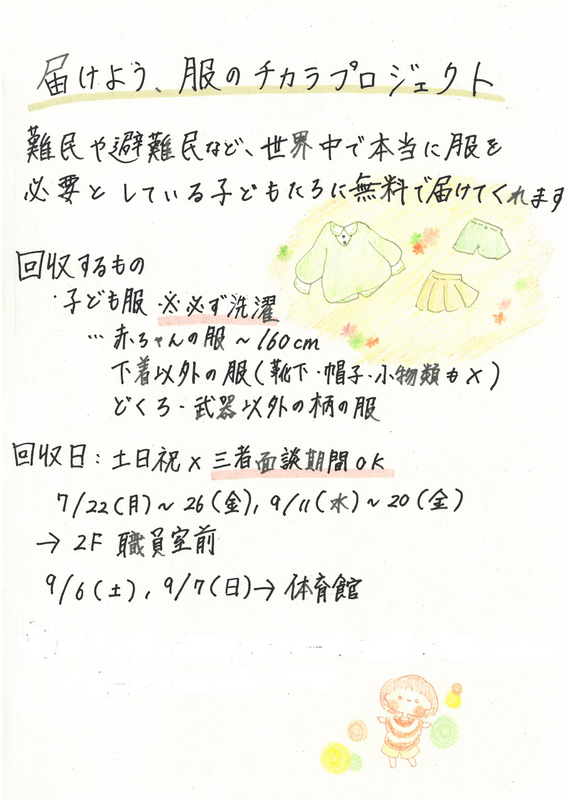 届けよう、服のチカラプロジェクト
難民や避難民など、世界中で本当に服を
必要としている子どもたちに無料で届けてくれます
回収するもの
・子ども服 ※必ず洗濯
…赤ちゃんの服～160cm
下着以外の服(靴下・帽子・小物類も×)
どくろ・武器以外の柄の服
回収日:土日祝× 三者面談期間OK
7/22(月)～26(金), 9/11(水)～20(金)
→ 2F 職員室前
9/6(土), 9/7(日)→ 体育館